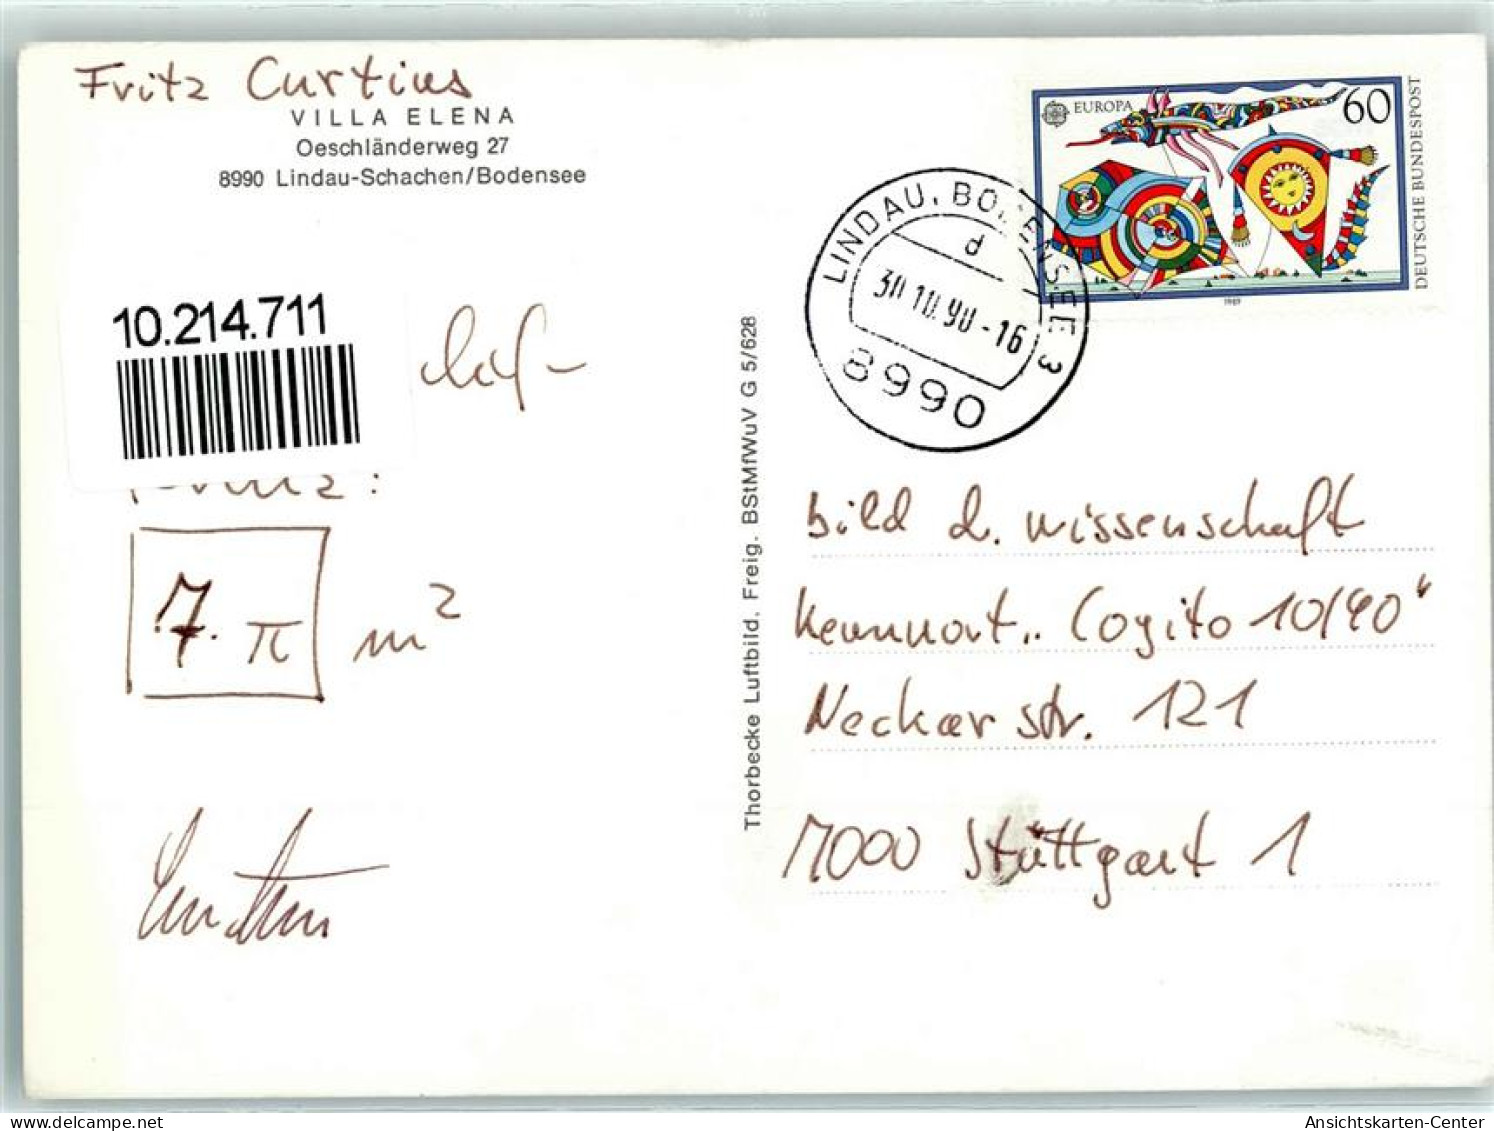 Fritz Curtius
VILLA ELENA
Oeschländerweg 27
8990 Lindau-Schachen/Bodensee
10.214.711
7. π m²
Thorbecke Luftbild. Freig. BStMfWuV G 5/628
EUROPA
60
DEUTSCHE BUNDESPOST
1989
LINDAU, BODENSEE 3
d
30.10.90-16
8990
bild d. wissenschaft
Kennwort „Cogito 10/90"
Neckarstr. 121
7000 Stuttgart 1
Ansichtskarten-Center
delcampe.net